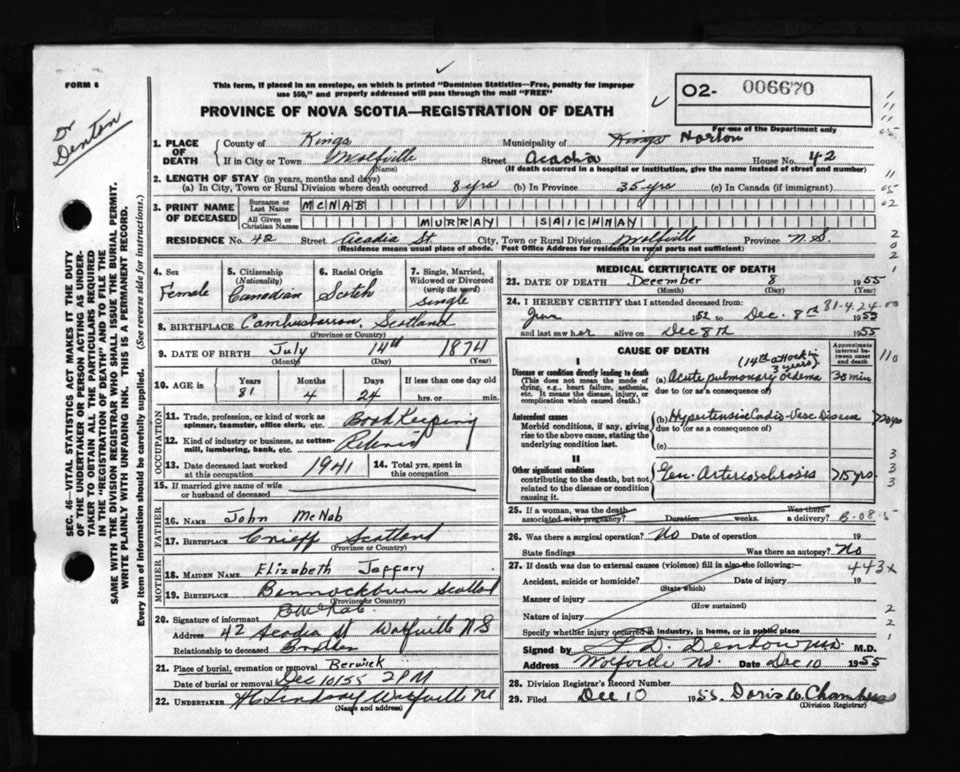 FORM 6
This form, if placed in an envelope, on which is printed "Dominion Statistics—Free, penalty for improper
use $50," and properly addressed will pass through the mail "FREE"
PROVINCE OF NOVA SCOTIA—REGISTRATION OF DEATH
02- 006670
For use of the Department only
Dr Denton
SEC. 46—VITAL STATISTICS ACT MAKES IT THE DUTY
OF THE UNDERTAKER OR PERSON ACTING AS UNDER-
TAKER TO OBTAIN ALL THE PARTICULARS REQUIRED
IN THE "REGISTRATION OF DEATH" AND TO FILE THE
SAME WITH THE DIVISION REGISTRAR WHO SHALL ISSUE THE BURIAL PERMIT.
WRITE PLAINLY WITH UNFADING INK. THIS IS A PERMANENT RECORD.
Every item of information should be carefully supplied. (See reverse side for instructions.)
1. PLACE OF DEATH County of Kings Municipality of Kings Horton
If in City or Town Wolfville Street Acadia House No. 42
(Name) (If death occurred in a hospital or institution, give the name instead of street and number)
2. LENGTH OF STAY (in years, months and days)
(a) In City, Town or Rural Division where death occurred 8 yrs (b) In Province 35 yrs (c) In Canada (if immigrant)
3. PRINT NAME OF DECEASED Surname or Last Name MCNAB
All Given or Christian Names MURRAY SAICHNAY
RESIDENCE No. 42 Street Acadia St. City, Town or Rural Division Wolfville Province N.S.
(Residence means usual place of abode. Post Office Address for residents in rural parts not sufficient)
4. Sex Female
5. Citizenship (Nationality) Canadian
6. Racial Origin Scotch
7. Single, Married, Widowed or Divorced (write the word) Single
8. BIRTHPLACE Cambusbarron, Scotland
(Province or Country)
9. DATE OF BIRTH July 14th 1874
(Month) (Day) (Year)
10. AGE IN Years 81 Months 4 Days 24 If less than one day old
hrs. or min.
OCCUPATION
11. Trade, profession, or kind of work as spinner, teamster, office clerk, etc. Book Keeping
12. Kind of industry or business, as cotton-mill, lumbering, bank, etc. Retired
13. Date deceased last worked at this occupation 1941 14. Total yrs. spent in this occupation
15. If married give name of wife or husband of deceased
FATHER
16. NAME John McNab
17. BIRTHPLACE Crieff Scotland
(Province or Country)
MOTHER
18. MAIDEN NAME Elizabeth Jeffery
19. BIRTHPLACE Bannockburn Scotland
(Province or Country)
20. Signature of informant D McNab
Address 42 Acadia St Wolfville NS
Relationship to deceased Brother
21. Place of burial, cremation or removal Berwick
Date of burial or removal Dec 10/55 2 PM
22. UNDERTAKER H C Lindsay Wolfville NS
(Name and address)
MEDICAL CERTIFICATE OF DEATH
23. DATE OF DEATH December 8 1955
(Month) (Day) (Year)
81-4-24
24. I HEREBY CERTIFY that I attended deceased from:
June 1952 to Dec. 8th 1955
and last saw her alive on Dec 8th 1955
CAUSE OF DEATH
Approximate interval between onset and death
I
Disease or condition directly leading to death
(This does not mean the mode of dying, e.g., heart failure, asthenia, etc. It means the disease, injury, or complication which caused death.)
(14th attack in 3 years)
(a) Acute pulmonary oedema 30 min
due to (or as a consequence of)
Antecedent causes
Morbid conditions, if any, giving rise to the above cause, stating the underlying condition last.
(b) Hypertensive Cardio-Vasc Disease >20 yrs
due to (or as a consequence of)
(c)
II
Other significant conditions
contributing to the death, but not related to the disease or condition causing it.
Gen. Arteriosclerosis >15 yrs.
25. If a woman, was the death associated with pregnancy? Duration weeks. Was there a delivery?
26. Was there a surgical operation? No Date of operation 19
State findings Was there an autopsy? No
27. If death was due to external causes (violence) fill in also the following:— 443x
Accident, suicide or homicide? Date of injury 19
(State which)
Manner of injury
(How sustained)
Nature of injury
Specify whether injury occurred in industry, in home, or in public place
Signed by M.D.
Address Wolfville NS. Date Dec 10 1955
28. Division Registrar's Record Number
29. Filed Dec 10 1955. Doris W. Chambers
(Division Registrar)